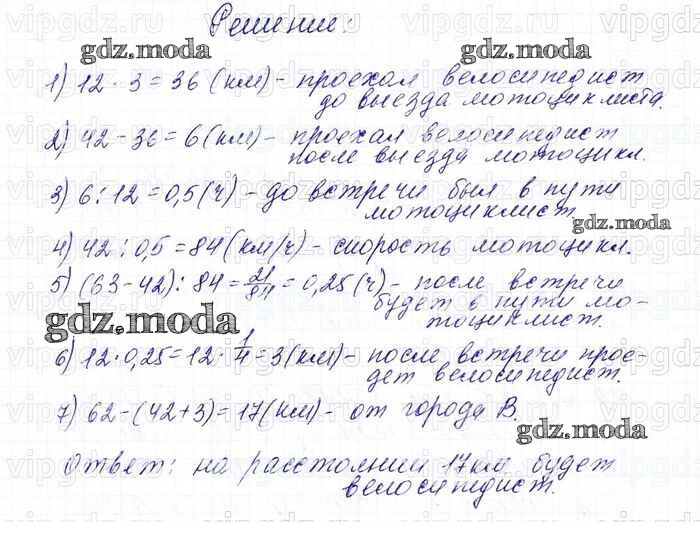 Решение:
1) 12 · 3 = 36 (км) - проехал велосипедист
до выезда мотоциклиста.
2) 42 - 36 = 6 (км) - проехал велосипедист
после выезда мотоцикл.
3) 6 : 12 = 0,5 (ч) - до встречи был в пути
мотоциклист.
4) 42 : 0,5 = 84 (км/ч) - скорость мотоцикл.
5) (63 - 42) : 84 = 21/84 = 0,25 (ч) - после встречи
будет в пути мо-
тоциклист.
6) 12 · 0,25 = 12 · 1/4 = 3 (км) - после встречи прое-
дет велосипедист.
7) 62 - (42 + 3) = 17 (км) - от города В.
Ответ: на расстоянии 17 км будет
велосипедист.
gdz.moda
gdz.moda
gdz.moda
gdz.moda
gdz.moda